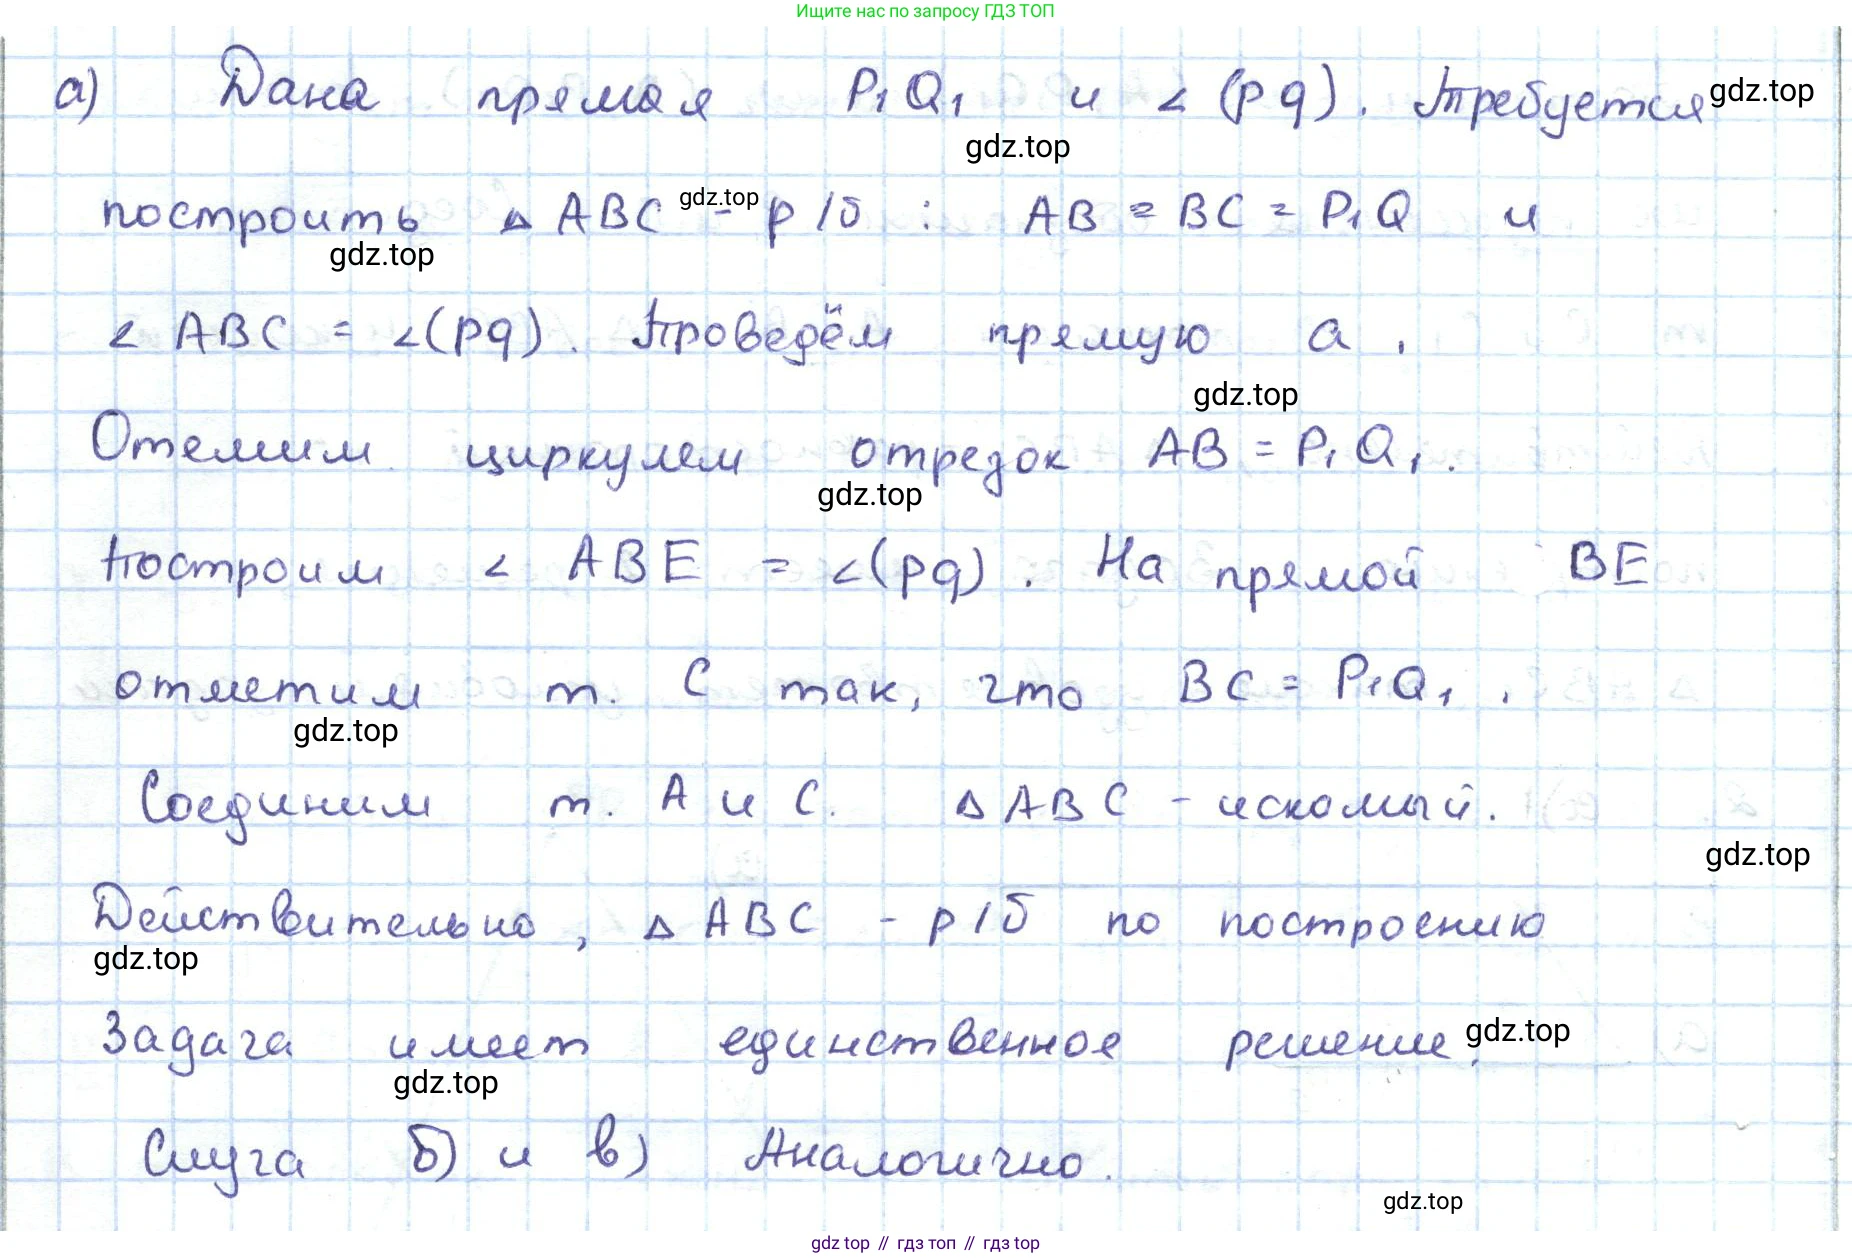 Ищите нас по запросу ГДЗ ТОП
а) Дана прямая P₁Q₁ и ∠(pq). Требуется gdz.top
gdz.top
построить △ABC - р/б : AB = BC = P₁Q и
gdz.top
gdz.top
∠ABC = ∠(pq). Проведём прямую a.
gdz.top
Отемим циркулем отрезок AB = P₁Q₁.
gdz.top
Построим ∠ABE = ∠(pq). На прямой BE
отметим т. C так, что BC = P₁Q₁.
gdz.top
Соединим т. A и C. △ABC - искомый.
gdz.top
Действительно, △ABC - р/б по построению
gdz.top
Задача имеет единственное решение. gdz.top
gdz.top
Случа б) и в) Аналогично.
gdz.top
gdz top // гдз топ // гдз top